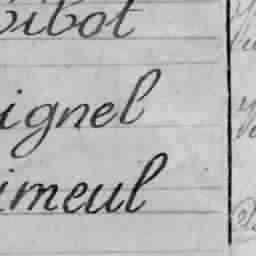 bibot
ignel
imeul